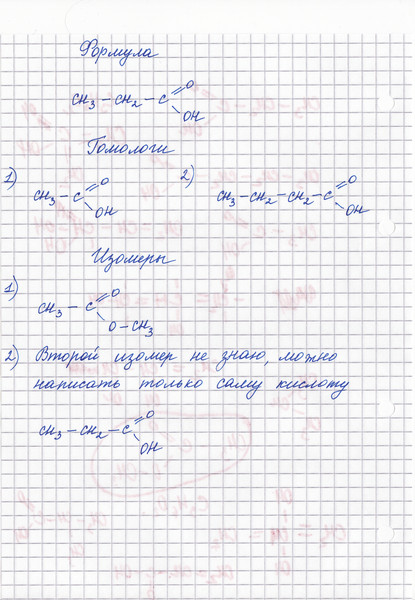 Формула
CH3 – CH2 – C
=O
OH
Гомологи
1) CH3 – C
=O
OH
2) CH3 – CH2 – CH2 – C
=O
OH
Изомеры
1) CH3 – C
=O
O – CH3
2) Второй изомер не знаю, можно
написать только саму кислоту
CH3 – CH2 – C
=O
OH